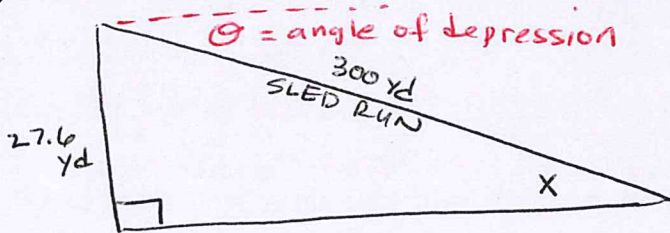 θ = angle of depression
300 yd
SLED RUN
27.6
yd
X